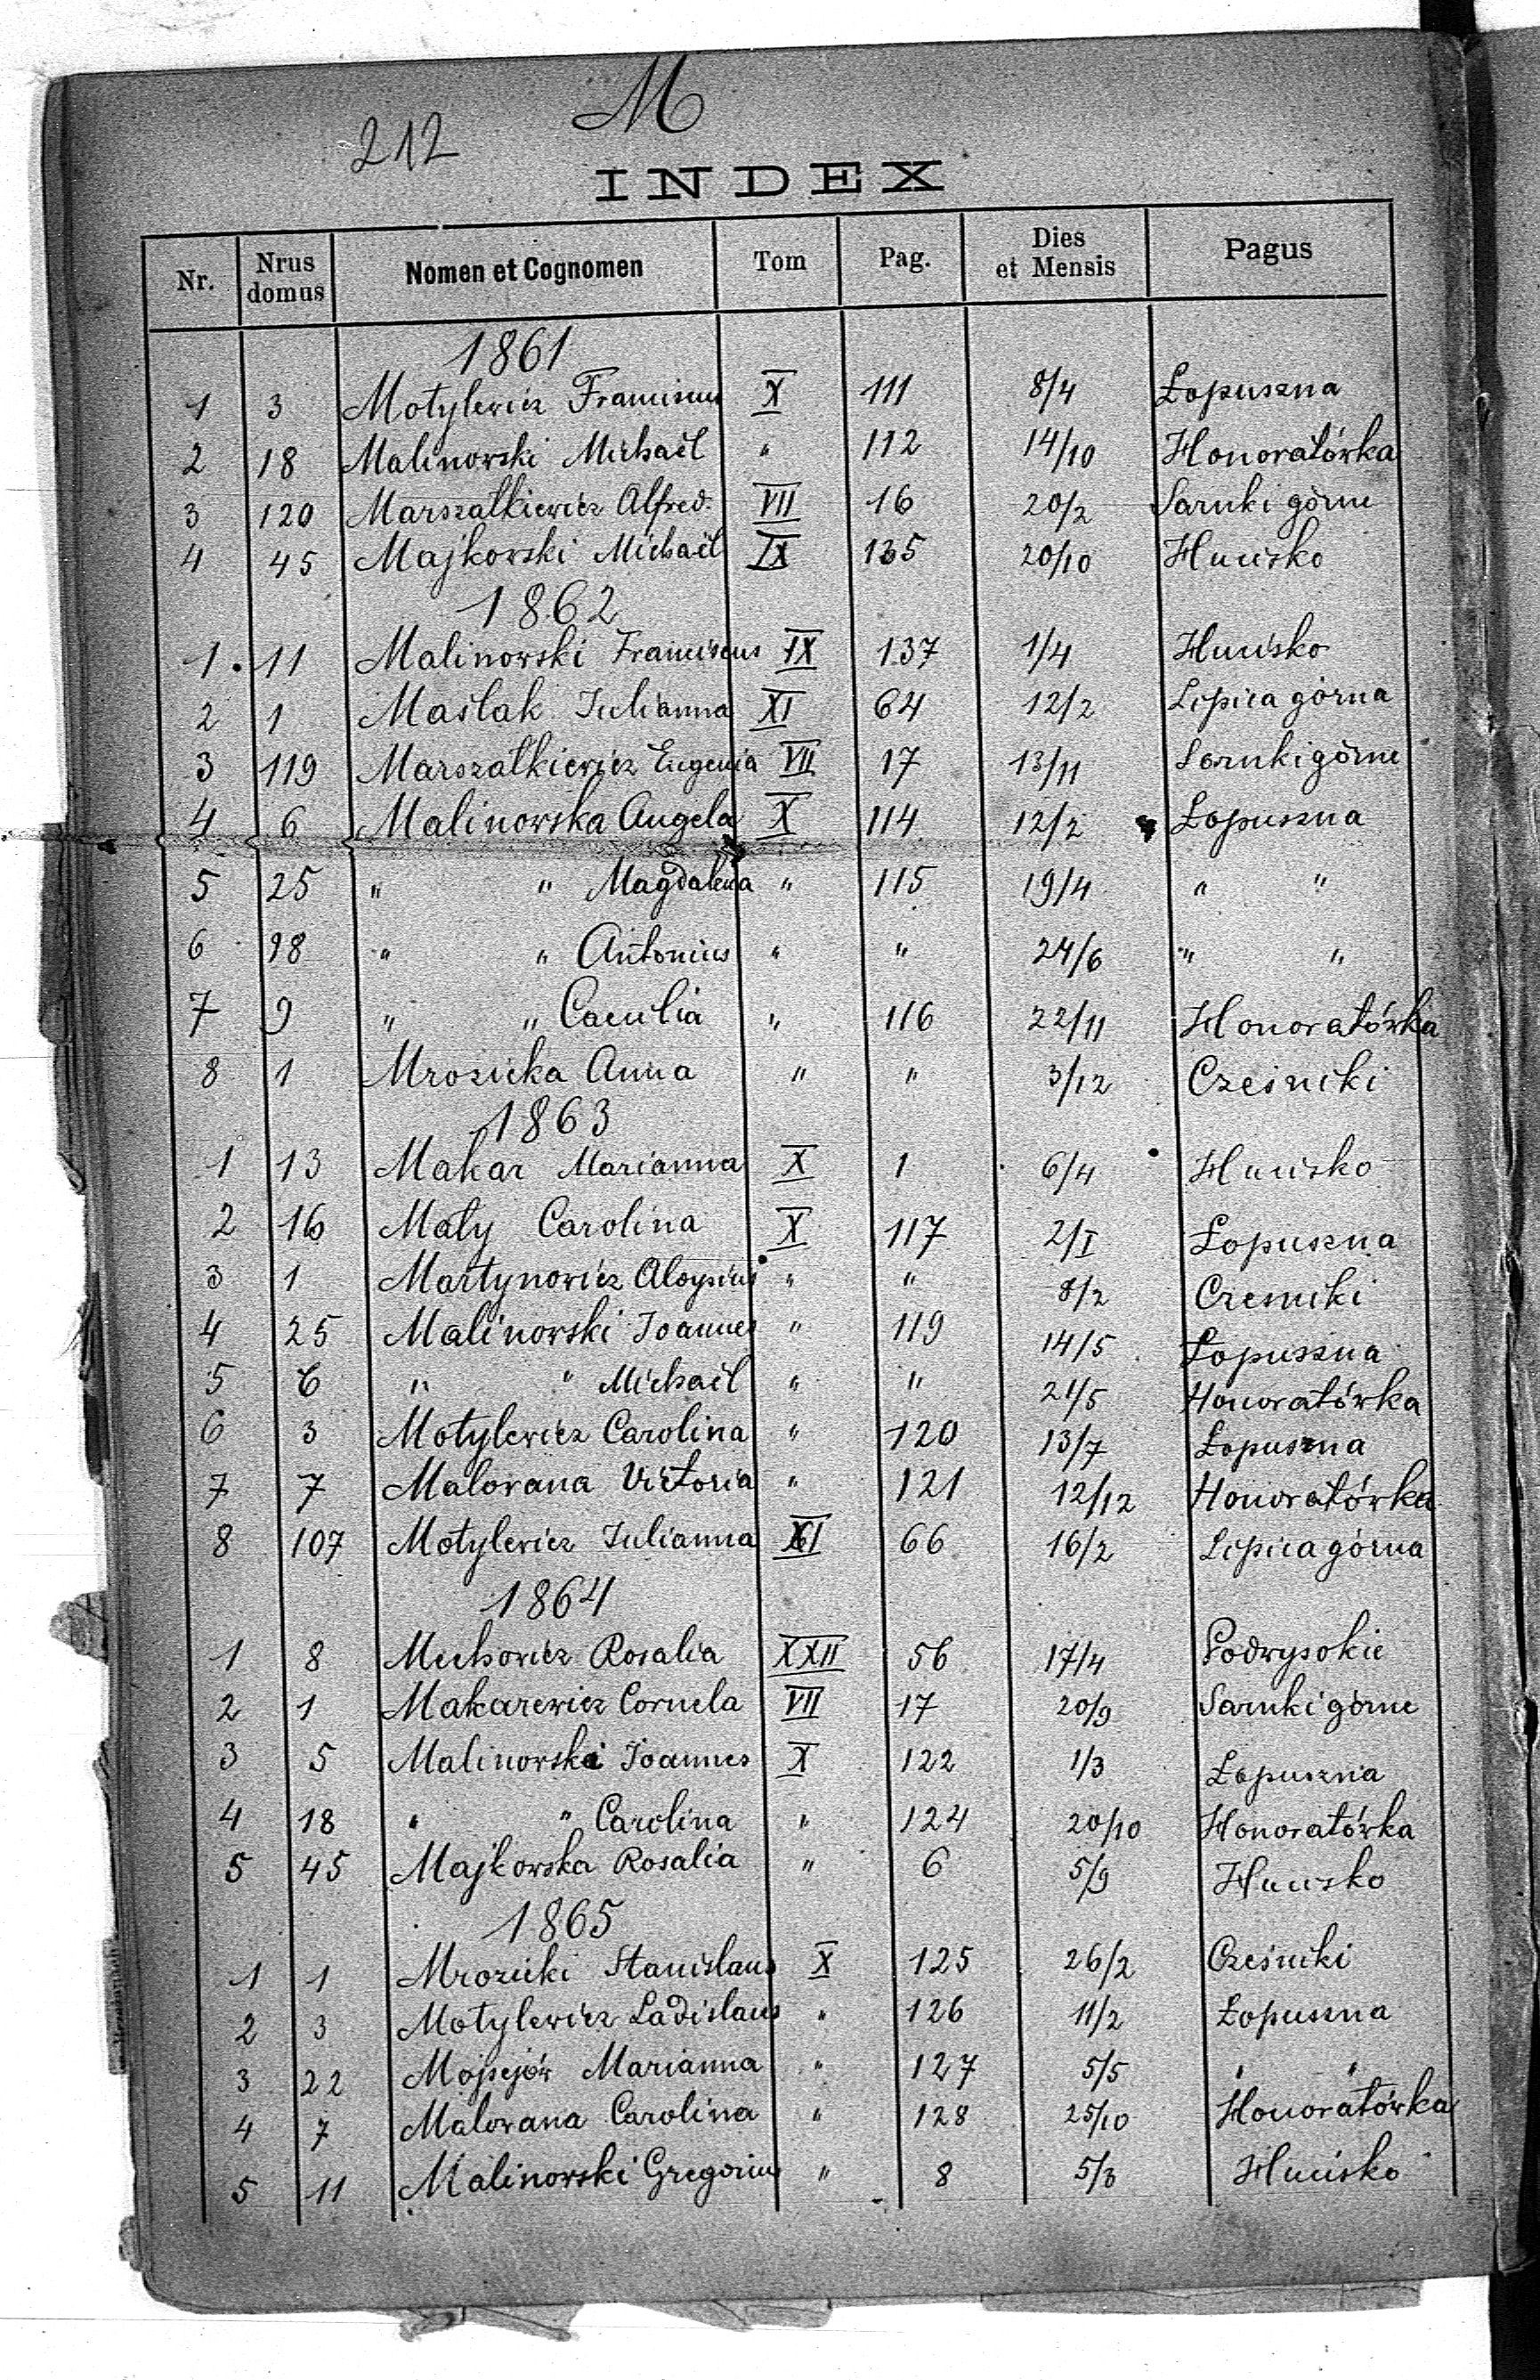 M
212
INDEX
Nr. Nrus domus Nomen et Cognomen Tom Pag. Dies et Mensis Pagus
1861
1 3 Motylewicz Franciscus X 111 8/4 Łopuszna
2 18 Malinowski Michaël " 112 14/10 Honoratówka
3 120 Marszałkiewicz Alfred. VII 16 20/2 Sarnki górne
4 45 Majkowski Michaël IX 135 20/10 Hucisko
1862
1. 11 Malinowski Franciscus IX 137 1/4 Hucisko
2 1 Maślak Julianna XI 64 12/2 Lipica górna
3 119 Marszałkiewicz Eugenia VII 17 13/11 Sarnki górne
4 6 Malinowska Angela X 114 12/2 Łopuszna
5 25 " " Magdalena " 115 19/4 " "
6 98 " " Antonius " " 24/6 " "
7 9 " " Caecilia " 116 22/11 Honoratówka
8 1 Mrozicka Anna " " 3/12 Cześniki
1863
1 13 Makar Marianna X 1 6/4 Hucisko
2 16 Mały Carolina X 117 2/I Łopuszna
3 1 Martynowicz Aloysius " " 8/2 Cześniki
4 25 Malinowski Joannes " 119 14/5 Łopuszna
5 6 " " Michaël " " 21/5 Honoratówka
6 3 Motylewicz Carolina " 120 13/7 Łopuszna
7 7 Malowana Victoria " 121 12/12 Honoratówka
8 107 Motylewicz Julianna XI 66 16/2 Lipica górna
1864
1 8 Michowicz Rosalia XXII 56 17/4 Podwysokie
2 1 Makarewicz Cornela VII 17 20/9 Sarnki górne
3 5 Malinowski Joannes X 122 1/3 Łopuszna
4 18 " " Carolina " 124 20/10 Honoratówka
5 45 Majkowska Rosalia " 6 5/9 Hucisko
1865
1 1 Mrozicki Stanislaus X 125 26/2 Cześniki
2 3 Motylewicz Ladislaus " 126 11/2 Łopuszna
3 22 Mojsejów Marianna " 127 5/5 " "
4 7 Malowana Carolina " 128 25/10 Honoratówka
5 11 Malinowski Gregorius " 8 5/3 Hucisko